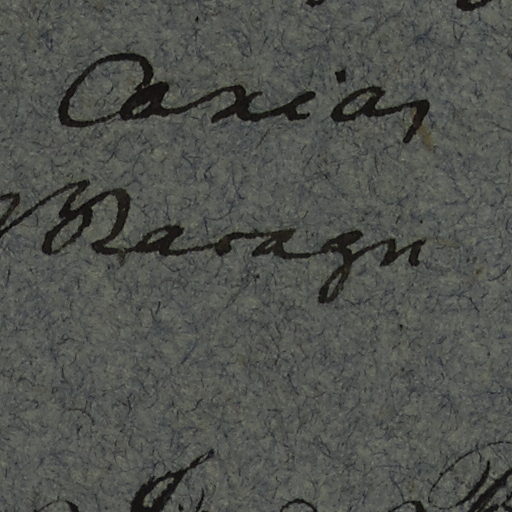 Caxias
Maragn